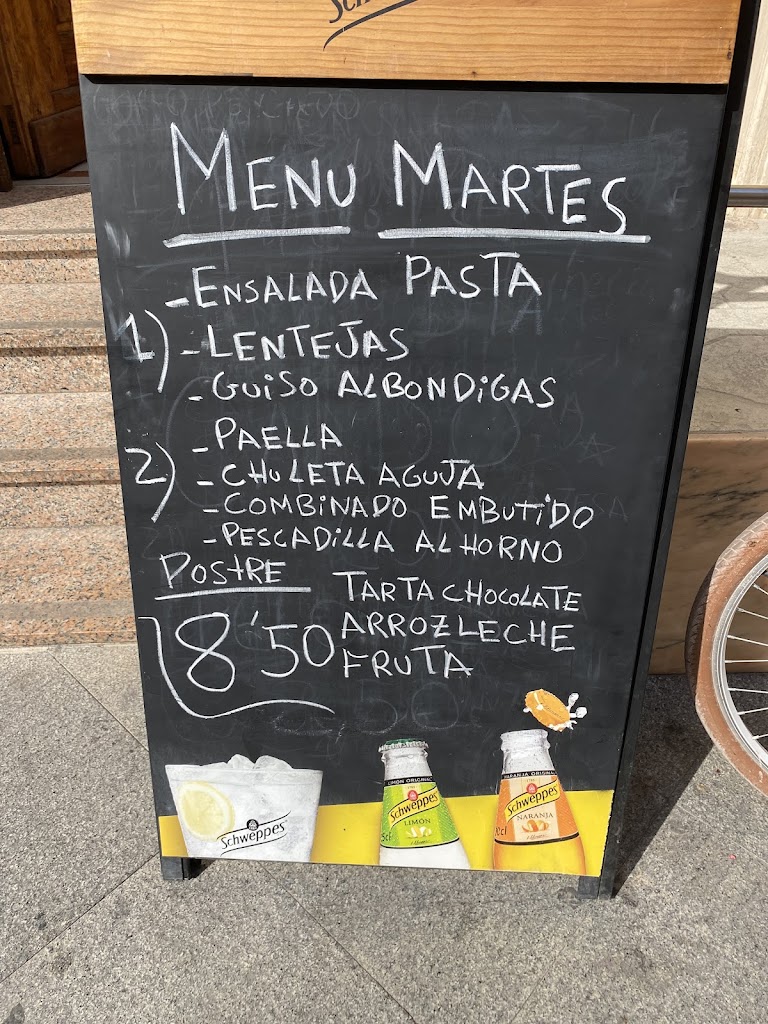 MENU MARTES
- ENSALADA PASTA
1) - LENTEJAS
- GUISO ALBONDIGAS
- PAELLA
2) - CHULETA AGUJA
- COMBINADO EMBUTIDO
- PESCADILLA AL HORNO
POSTRE TARTA CHOCOLATE
8'50 ARROZ LECHE
FRUTA
Schweppes
LIMÓN ORIGINAL
Schweppes
LIMÓN
NARANJA ORIGINAL
Schweppes
NARANJA